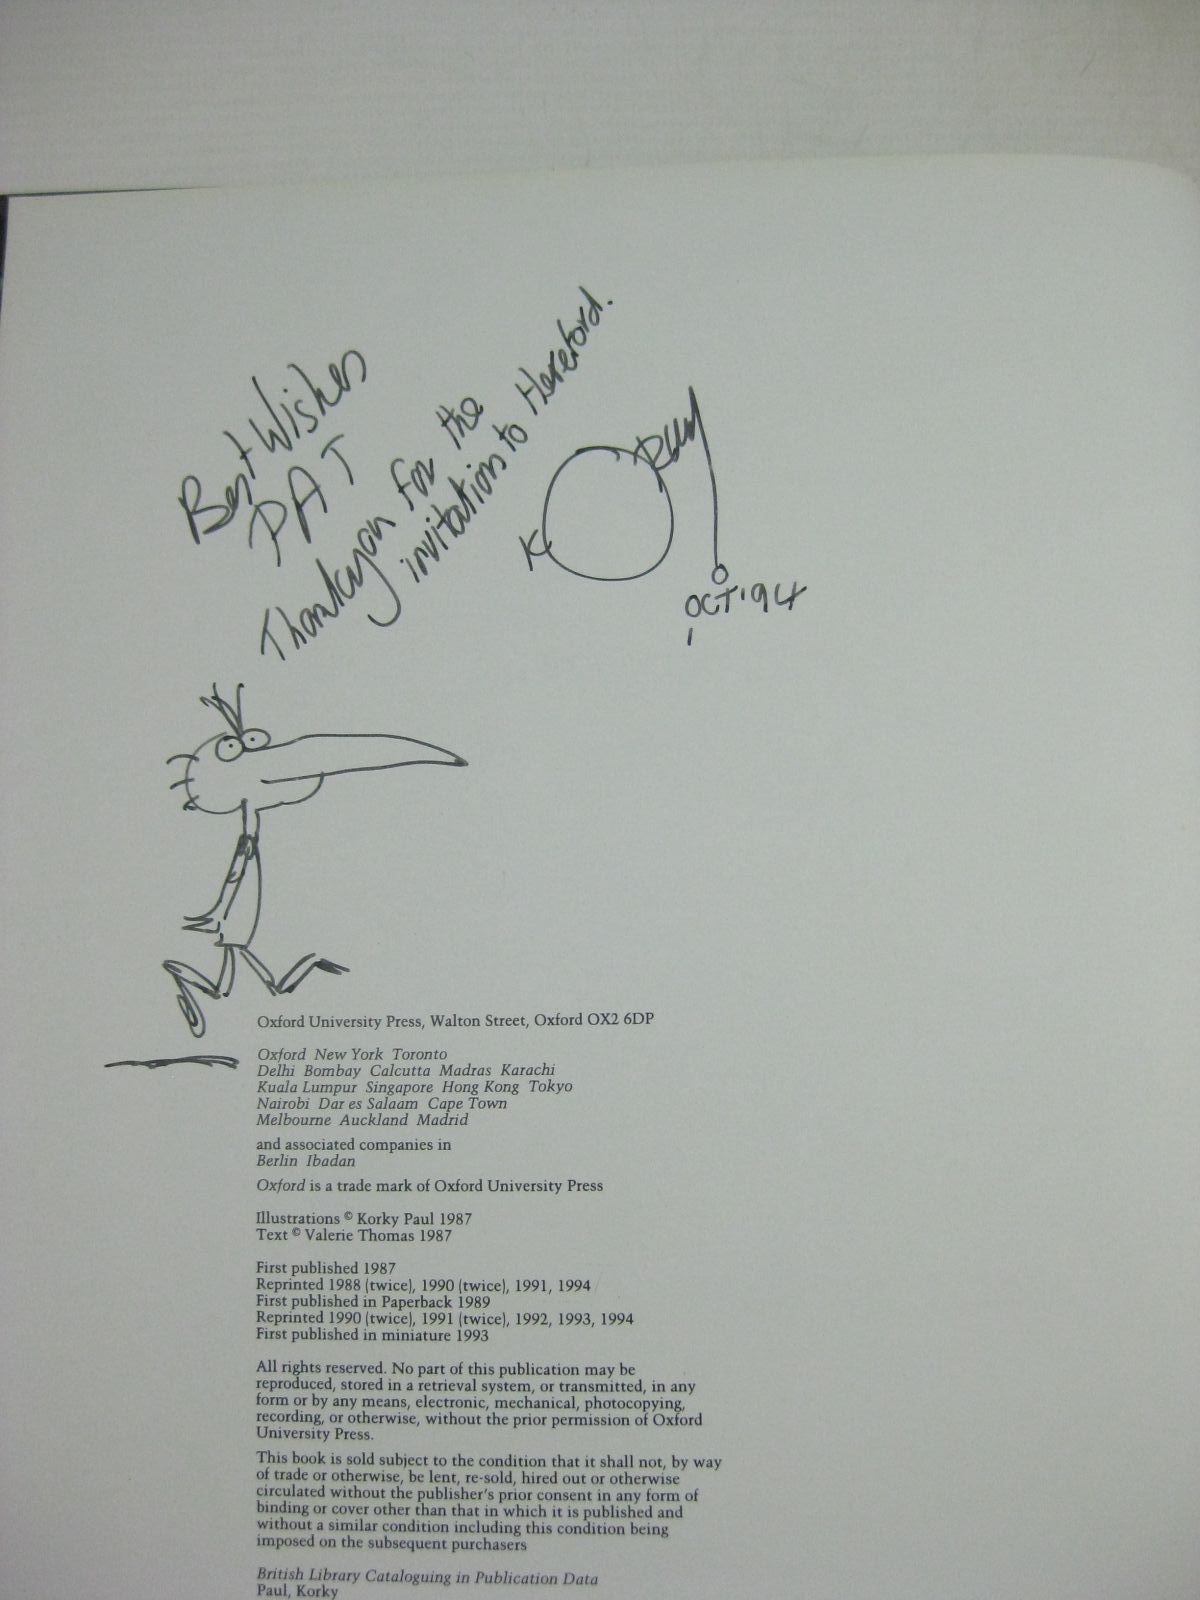 Best Wishes
PAT
Thankyou for the
invitations to Hereford.
Korky
OCT '94
Oxford University Press, Walton Street, Oxford OX2 6DP
Oxford New York Toronto
Delhi Bombay Calcutta Madras Karachi
Kuala Lumpur Singapore Hong Kong Tokyo
Nairobi Dar es Salaam Cape Town
Melbourne Auckland Madrid
and associated companies in
Berlin Ibadan
Oxford is a trade mark of Oxford University Press
Illustrations © Korky Paul 1987
Text © Valerie Thomas 1987
First published 1987
Reprinted 1988 (twice), 1990 (twice), 1991, 1994
First published in Paperback 1989
Reprinted 1990 (twice), 1991 (twice), 1992, 1993, 1994
First published in miniature 1993
All rights reserved. No part of this publication may be
reproduced, stored in a retrieval system, or transmitted, in any
form or by any means, electronic, mechanical, photocopying,
recording, or otherwise, without the prior permission of Oxford
University Press.
This book is sold subject to the condition that it shall not, by way
of trade or otherwise, be lent, re-sold, hired out or otherwise
circulated without the publisher's prior consent in any form of
binding or cover other than that in which it is published and
without a similar condition including this condition being
imposed on the subsequent purchasers
British Library Cataloguing in Publication Data
Paul, Korky